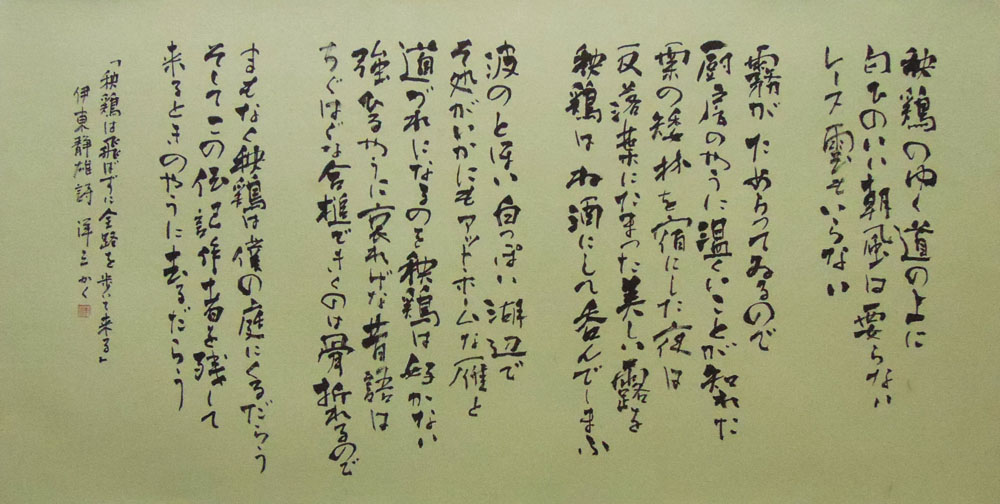 秧鶏のゆく道の上に
匂ひのいい朝風は要らない
レース雲もいらない
霧がためらってゐるので
厨房のやうに温くいことが知れた
栗の矮林を宿にした夜は
反落葉にたまった美しい露を
秧鶏はね酒にして呑んでしまふ
波のとほい白っぽい湖辺で
そ処がいかにもアット・ホームな雁と
道づれになるのを秧鶏は好かない
強ひるやうに哀れげな昔語は
ちぐはぐな合槌できくのは骨折れるので
まもなく秧鶏は僕の庭にくるだらう
そしてこの伝記作者を残して
来るときのやうに去るだらう
「秧鶏は飛ばずに全路を歩いて来る」
伊東静雄詩 洋三かく